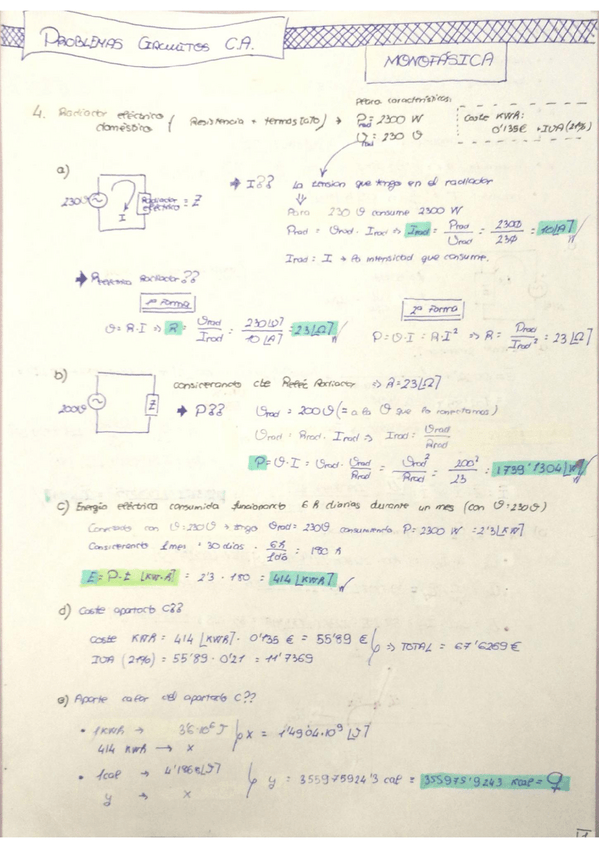 PROBLEMAS CIRCUITOS C.A.
MONOFÁSICA
4. Radiador eléctrico doméstico (Resistencia + termostato) → Placa características:
P rad = 2300 W
V rad = 230 V
Coste KWh:
0'135€ + IVA (21%)
a)
230V
I
Radiador eléctrico = Z
→ I?? La tension que tengo en el radiador
⇓
Para 230 V consume 2300 W
Prad = Vrad · Irad ⇒ Irad = Prad / Vrad = 2300 / 230 = 10[A]
Irad = I → la intensidad que consume.
→ Resistencia Radiador??
1ª Forma
V = R·I ⇒ R = Vrad / Irad = 230[V] / 10[A] = 23[Ω]
2ª Forma
P = V·I = R·I² ⇒ R = Prad / Irad² = 23[Ω]
b)
200V
Z
considerando cte Radiador ⇒ R = 23[Ω]
→ P?? Vrad = 200V (= a la V que lo conectamos)
Vrad = Rrad · Irad ⇒ Irad = Vrad / Rrad
P = V·I = Vrad · Vrad / Rrad = Vrad² / Rrad = 200² / 23 = 1739'1304[W]
c) Energía eléctrica consumida funcionando 6h diarias durante un mes (con V=230V)
Conectado con V=230V → tengo Vrad = 230V consumiendo P = 2300 W = 2'3[KW]
Considerando 1 mes = 30 dias · 6h / 1dia = 180 h
E = P·t [KW·h] = 2'3 · 180 = 414[KWh]
d) Coste apartado C??
Coste KWh = 414 [KWh] · 0'135 € = 55'89 €
IVA (21%) = 55'89 · 0'21 = 11'7369
⇒ TOTAL = 67'6269€
e) Aporte calor del apartado C??
• 1KWh → 3'6·10⁶ J
414 KWh → x
x = 1'4904·10⁹ [J]
• 1cal → 4'1868[J]
y → x
y = 355975924'3 cal = 355975'9243 Kcal = Q